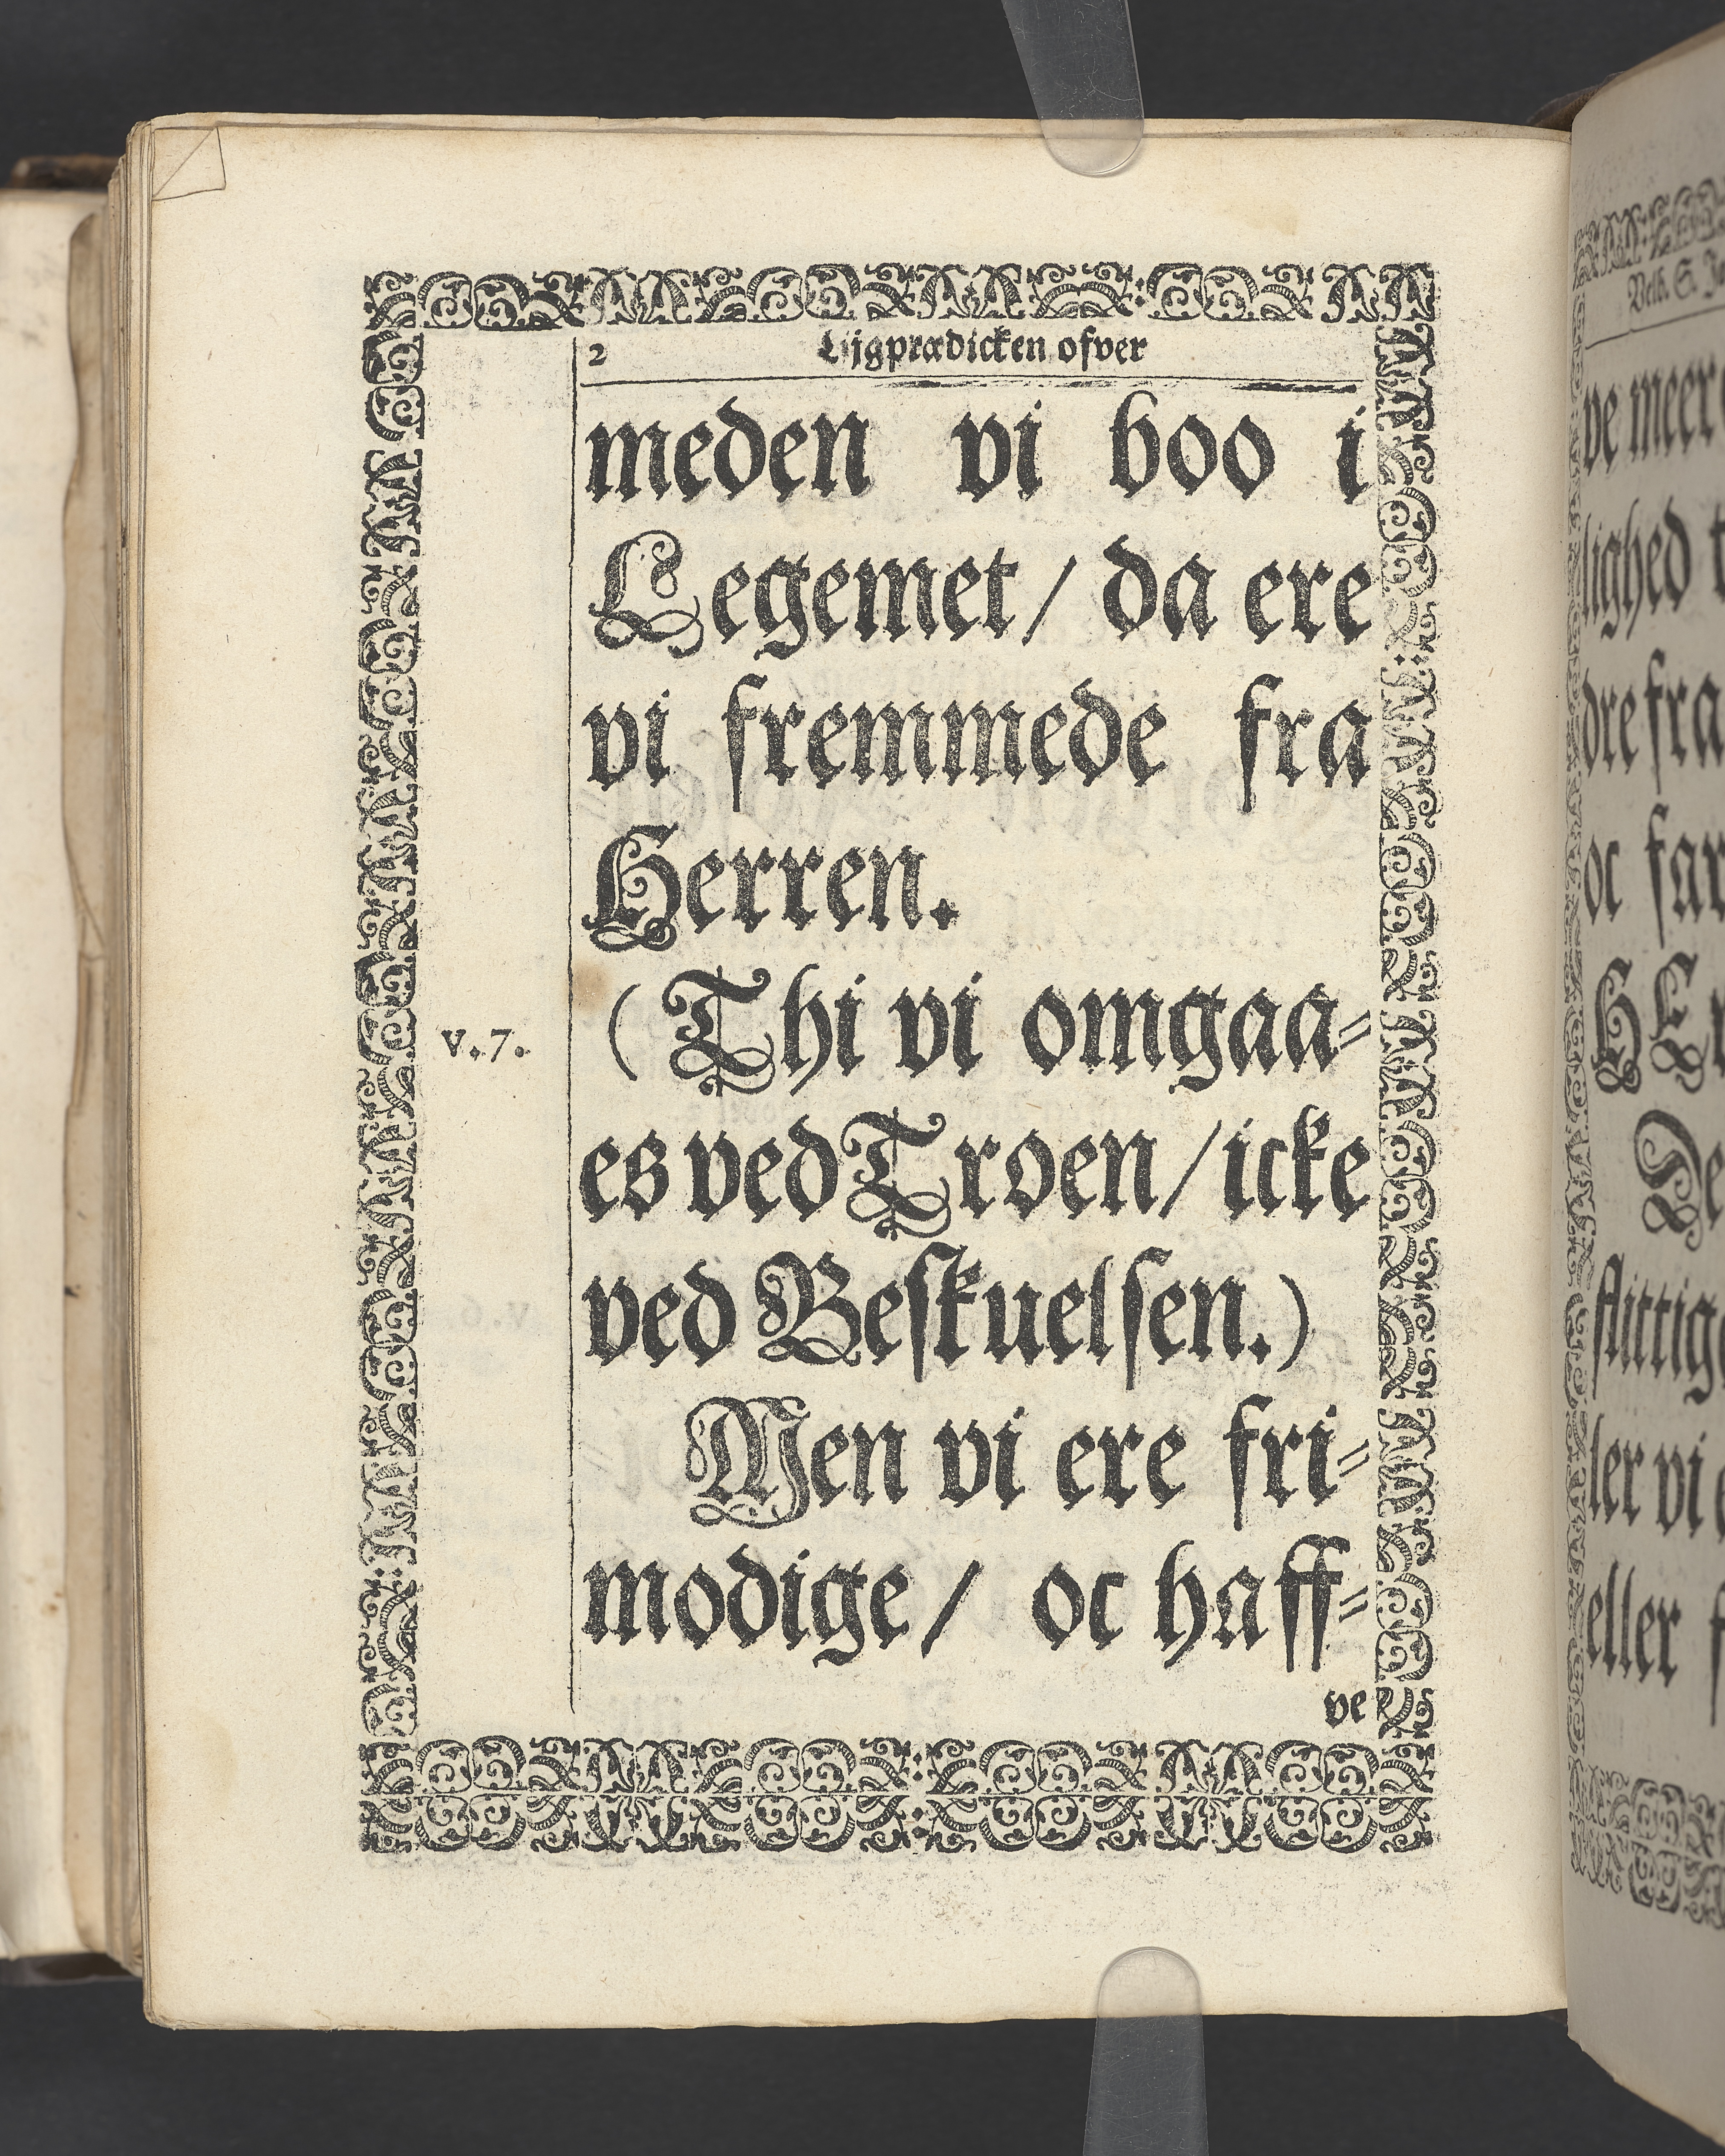 2 Lijgprædicken ofver
meden vi boo i
Legemet / da ere
vi fremmede fra
Herren.
v.7. (Thi vi omgaa-
es ved Troen / icke
ved Beskuelsen.)
Men vi ere fri-
modige / oc haff-
ve
Velb. S.
ve meer
lighed
dre fra
oc
flittig
ler vi
eller